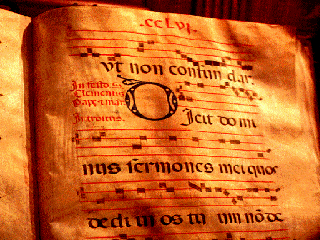 .CCLVI.
Vt non confundar.
In festo S.
Clementis
Pape & mar.
Introitus.
Dicit domi
nus sermones mei quos
dedi in os tuum nō de